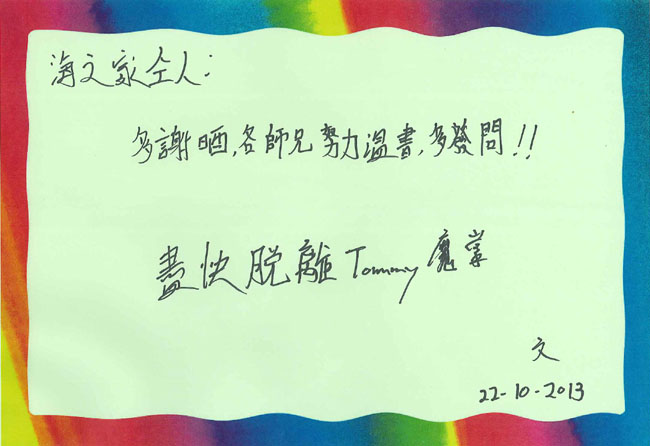 海文家仝人：
多謝晒，各師兄努力溫書，多發問！！
盡快脫離Tommy魔掌
文
22-10-2013